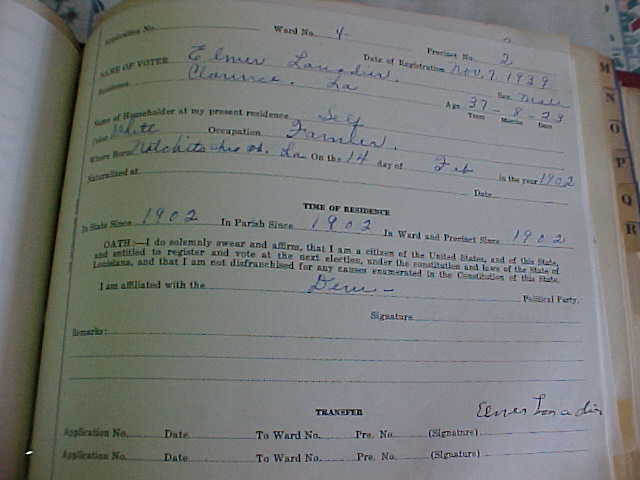 Application No. Ward No. 4 Precinct No. 2
NAME OF VOTER Elmer Date of Registration Nov. 7, 1939
Residence Clarence, La Sex male
Age 37 - 8 - 23
Years Months Days
Name of Householder at my present residence Self
Color White Occupation Farmer.
Where Born Natchitoches Ph. La On the 14 day of Feb in the year 1902
Naturalized at Date
TIME OF RESIDENCE
In State Since 1902 In Parish Since 1902 In Ward and Precinct Since 1902
OATH:—I do solemnly swear and affirm, that I am a citizen of the United States, and of this State,
and entitled to register and vote at the next election, under the constitution and laws of the State of
Louisiana, and that I am not disfranchised for any causes enumerated in the Constitution of this State.
I am affiliated with the Dem- Political Party.
Signature
Remarks:
TRANSFER Elmer
Application No. Date To Ward No. Pre. No. (Signature)
Application No. Date To Ward No. Pre. No. (Signature)
M
N
O
P
Q
R